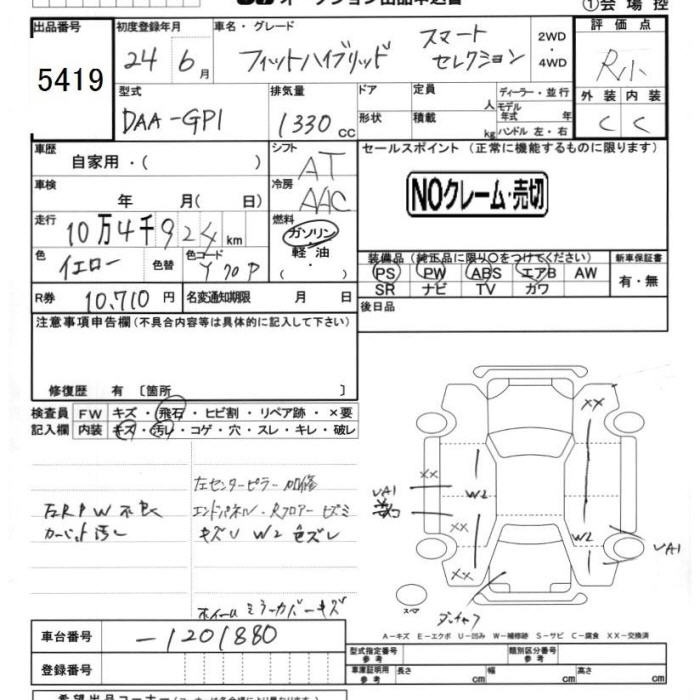 ①会場控
出品番号
5419
初度登録年月
24 6月
車名・グレード
フィットハイブリッド スマートセレクション
2WD
・
4WD
評価点
R小
外装 内装
C C
型式
DAA-GP1
排気量
1330 cc
ドア
形状
定員
人
積載
kg
ディーラー・並行
モデル年式 年
ハンドル 左・右
車歴
自家用・( )
シフト
AT
車検
年 月( 日)
冷房
AAC
走行
10万4千924km
燃料
ガソリン
軽油
・
色
イエロー
色替
色コード
Y70P
R券
10,710円
名変通知期限 月 日
セールスポイント(正常に機能するものに限ります)
NOクレーム・売切
装備品(純正品に限り○をつけてください)
PS PW ABS エアB AW
SR ナビ TV カワ
新車保証書
有・無
後日品
注意事項申告欄(不具合内容等は具体的に記入して下さい)
修復歴 有 〔箇所 〕
検査員記入欄
FW キズ・飛石・ヒビ割・リペア跡・×要
内装 キズ・汚レ・コゲ・穴・スレ・キレ・破レ
左センターピラー 加修
右RPW不良
エンドパネル・Rフロアー ヒズミ
カーペット汚レ
キズU W2 色ズレ
ホイール ミラーカバーキズ
XX
XX
W2
UA1
XX
W2
UA1
XX
スペア
A-キズ E-エクボ U-凹み W-補修跡 S-サビ C-腐食 XX-交換済
車台番号
-1201880
登録番号
型式指定番号
参考
類別区分番号
参考
車庫証明用
参考
長さ cm
幅 cm
高さ cm